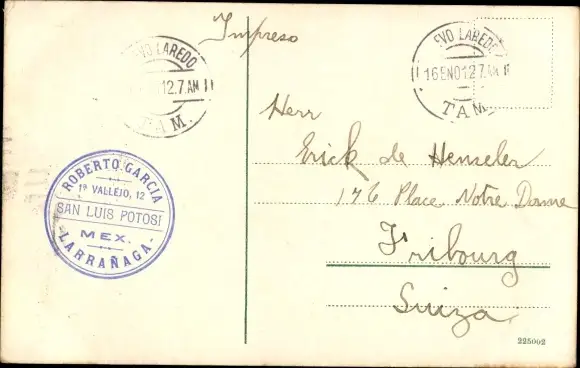 Impreso
EVO LAREDO
12.7 AM
TAM.
EVO LAREDO
16 ENO 12 7 AM
TAM
ROBERTO GARCIA
1ª VALLEJO, 12
SAN LUIS POTOSI
MEX.
LARRAÑAGA
Herr
Erick de Henseler
176 Place Notre Dame
Fribourg
Suiza.
225002